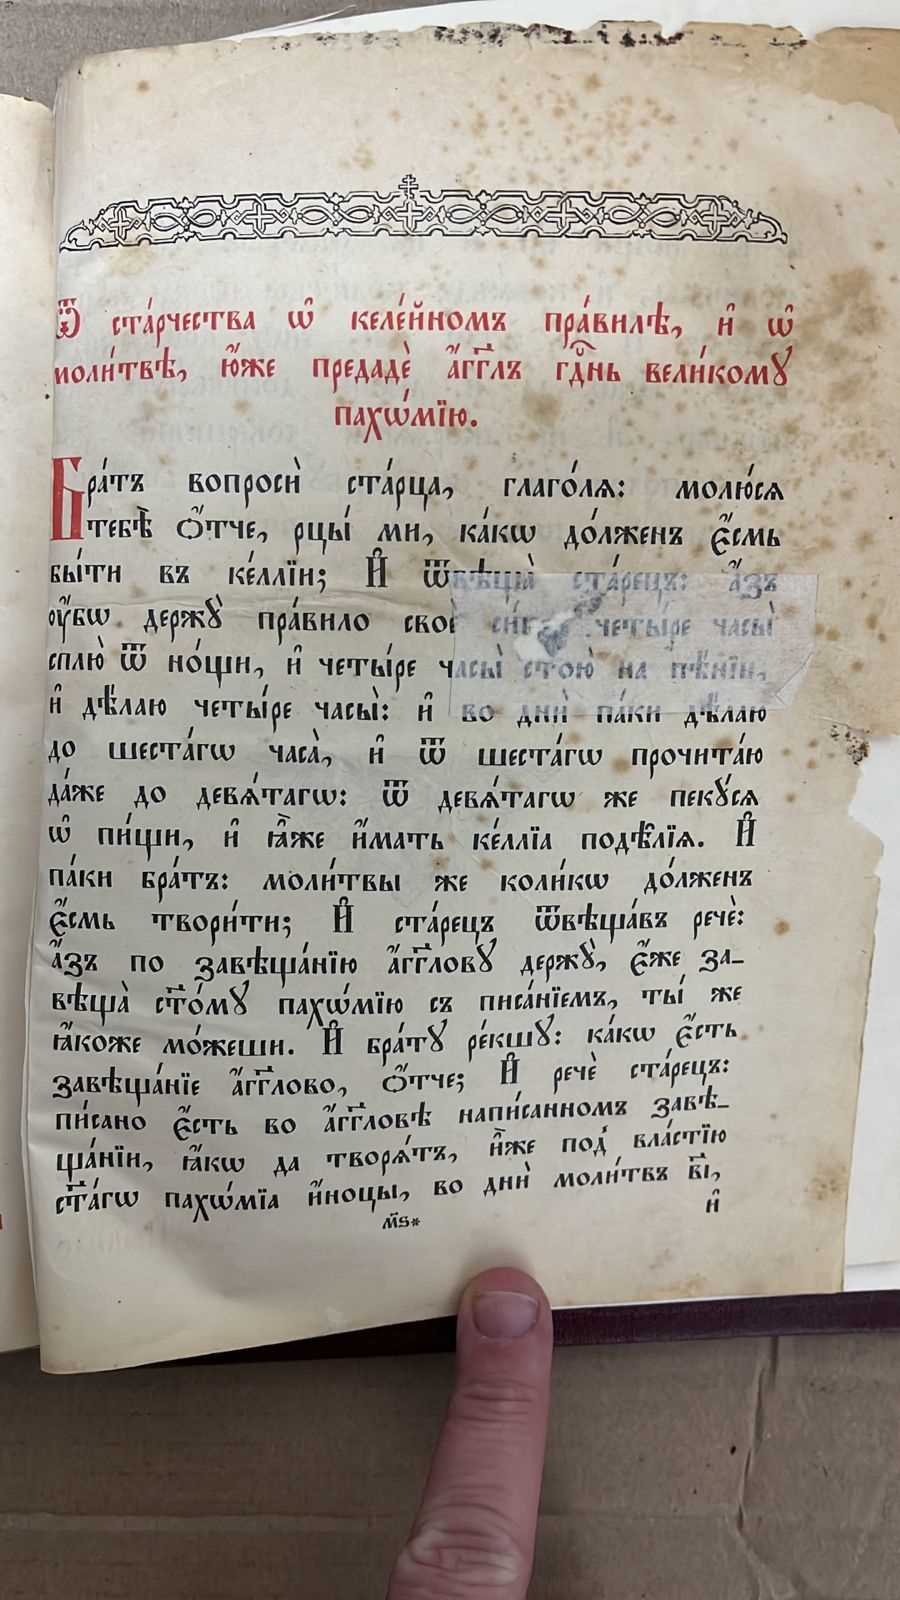 Ѿ ста́рчества ѡ҆ келе́йномъ пра́вилѣ, и҆ ѡ҆
моли́твѣ, ю҆́же предадѐ а҆́гг҃лъ гдⷭ҇нь вели́комꙋ
пахѡ́мїю.
Бра́тъ вопросѝ ста́рца, глаго́лѧ: молю́сѧ
тебѣ̀ ѻ҆́тче, рцы́ ми, ка́кѡ до́лженъ є҆́смь
бы́ти въ ке́ллїи; И҆ ѿвѣща̀ ста́рецъ: а҆́зъ
ᲂу҆́бѡ держꙋ̀ пра́вило своѐ четы́ре часы̀
сплю̀ ѿ но́щи, и҆ четы́ре часы̀ стою̀ на пѣ́нїи,
и҆ дѣ́лаю четы́ре часы̀: и҆ во днѝ па́ки дѣ́лаю
до шеста́гѡ часа̀, и҆ ѿ шеста́гѡ прочита́ю
да́же до девѧ́тагѡ: ѿ девѧ́тагѡ же пекꙋ́сѧ
ѡ҆ пи́щи, и҆ ꙗ҆̀же и҆́мать ке́ллїа подѣ́лїѧ. И҆
па́ки бра́тъ: моли́твы же коли́кѡ до́лженъ
є҆́смь твори́ти; И҆ ста́рецъ ѿвѣща́въ речѐ:
а҆́зъ по завѣща́нїю а҆́гг҃ловꙋ держꙋ̀, є҆́же за_
вѣща̀ ст҃о́мꙋ пахѡ́мїю съ писа́нїемъ, ты́ же
ꙗ҆́коже мо́жеши. И҆ бра́тꙋ ре́кшꙋ: ка́кѡ є҆́сть
завѣща́нїе а҆́гг҃лово, ѻ҆́тче; И҆ речѐ ста́рецъ:
пи́сано є҆́сть во а҆́гг҃ловѣ напи́санномъ завѣ_
ща́нїи, ꙗ҆́кѡ да творѧ́тъ, и҆̀же под̾ вла́стїю
ст҃а́гѡ пахѡ́мїа и҆́ноцы, во днѝ моли́твъ в҃і,
и҆
м҃ѕ*